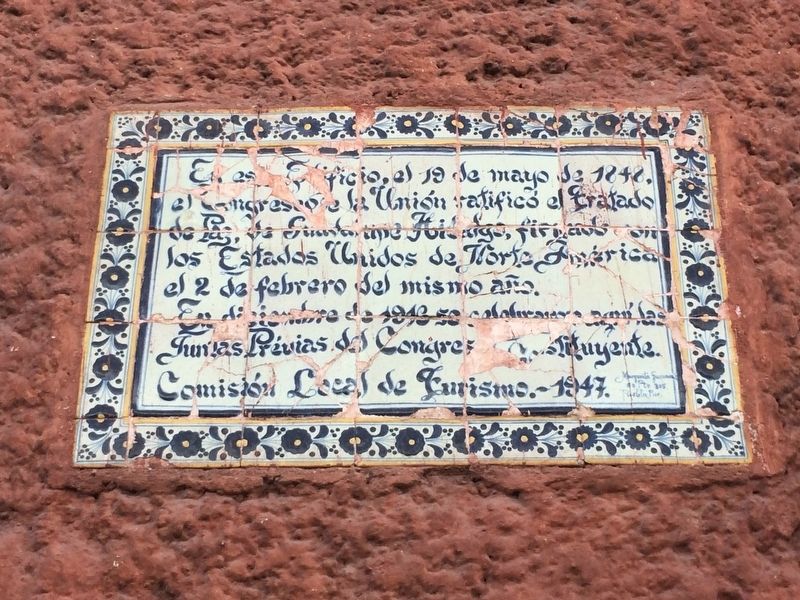 En es Edificio, el 19 de mayo de 1848,
el Congreso de la Unión ratificó el Tratado
de Paz, de Guadalupe Hidalgo firmado con
los Estados Unidos de Norte América
el 2 de febrero del mismo año.
En diciembre de 1916 se celebraron aquí las
Juntas Prévias del Congreso Constituyente.
Comisión Local de Turismo.-1947.
Puebla, Pue.